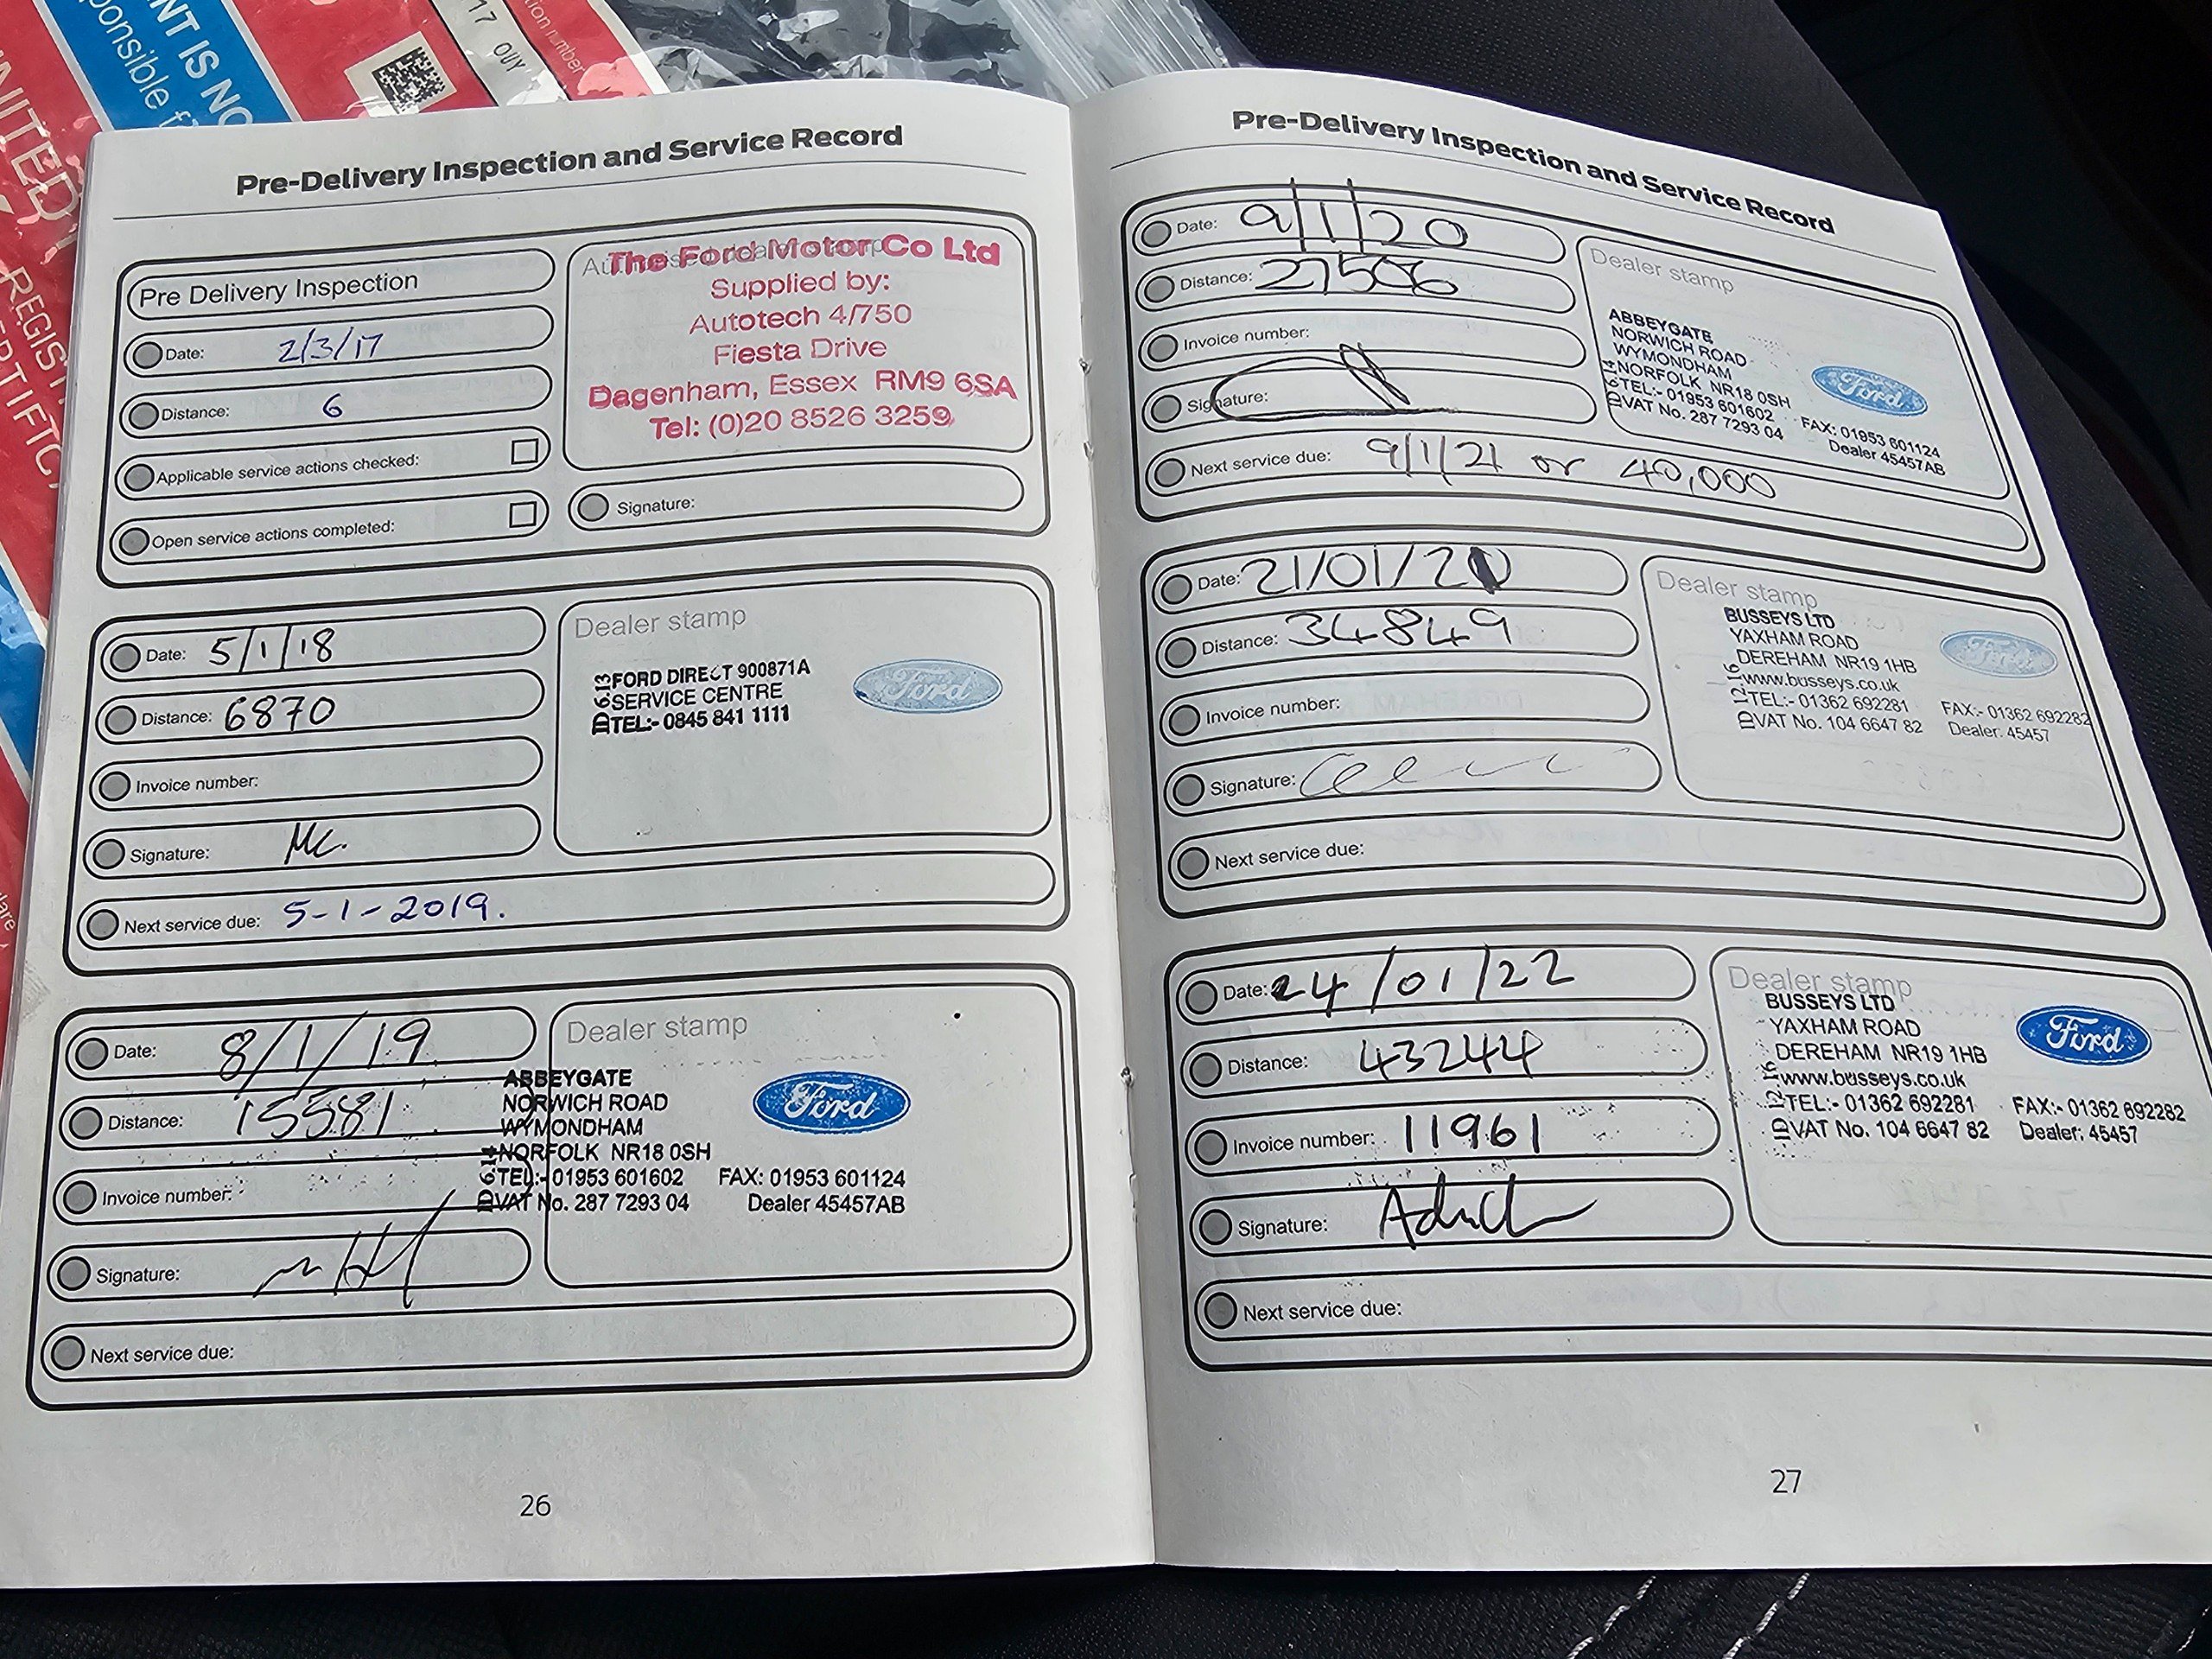 NT IS NO
ponsible f
UNITED
REGIS
ERTIFIC
17 OUY
tion number
Pre-Delivery Inspection and Service Record
Pre Delivery Inspection
Date: 2/3/17
Distance: 6
Applicable service actions checked:
Open service actions completed:
The Ford Motor Co Ltd
Supplied by:
Autotech 4/750
Fiesta Drive
Dagenham, Essex RM9 6SA
Tel: (0)20 8526 3259
Signature:
Date: 5/1/18
Distance: 6870
Invoice number:
Signature: Mc.
Next service due: 5-1-2019.
Dealer stamp
FORD DIRECT 900871A
SERVICE CENTRE
TEL:- 0845 841 1111
Ford
Date: 8/1/19
Distance: 15581
Invoice number:
Signature:
Next service due:
Dealer stamp
ABBEYGATE
NORWICH ROAD
WYMONDHAM
NORFOLK NR18 0SH
TEL:- 01953 601602 FAX: 01953 601124
VAT No. 287 7293 04 Dealer 45457AB
Ford
26
Pre-Delivery Inspection and Service Record
Date: 9/1/20
Distance: 27506
Invoice number:
Signature:
Next service due: 9/1/21 or 40,000
Dealer stamp
ABBEYGATE
NORWICH ROAD
WYMONDHAM
NORFOLK NR18 0SH
TEL:- 01953 601602 FAX: 01953 601124
VAT No. 287 7293 04 Dealer 45457AB
Ford
Date: 21/01/21
Distance: 34849
Invoice number:
Signature:
Next service due:
Dealer stamp
BUSSEYS LTD
YAXHAM ROAD
DEREHAM NR19 1HB
www.busseys.co.uk
TEL:- 01362 692281 FAX:- 01362 692282
VAT No. 104 6647 82 Dealer: 45457
Ford
Date: 24/01/22
Distance: 43244
Invoice number: 11961
Signature:
Next service due:
Dealer stamp
BUSSEYS LTD
YAXHAM ROAD
DEREHAM NR19 1HB
www.busseys.co.uk
TEL:- 01362 692281 FAX:- 01362 692282
VAT No. 104 6647 82 Dealer: 45457
Ford
27